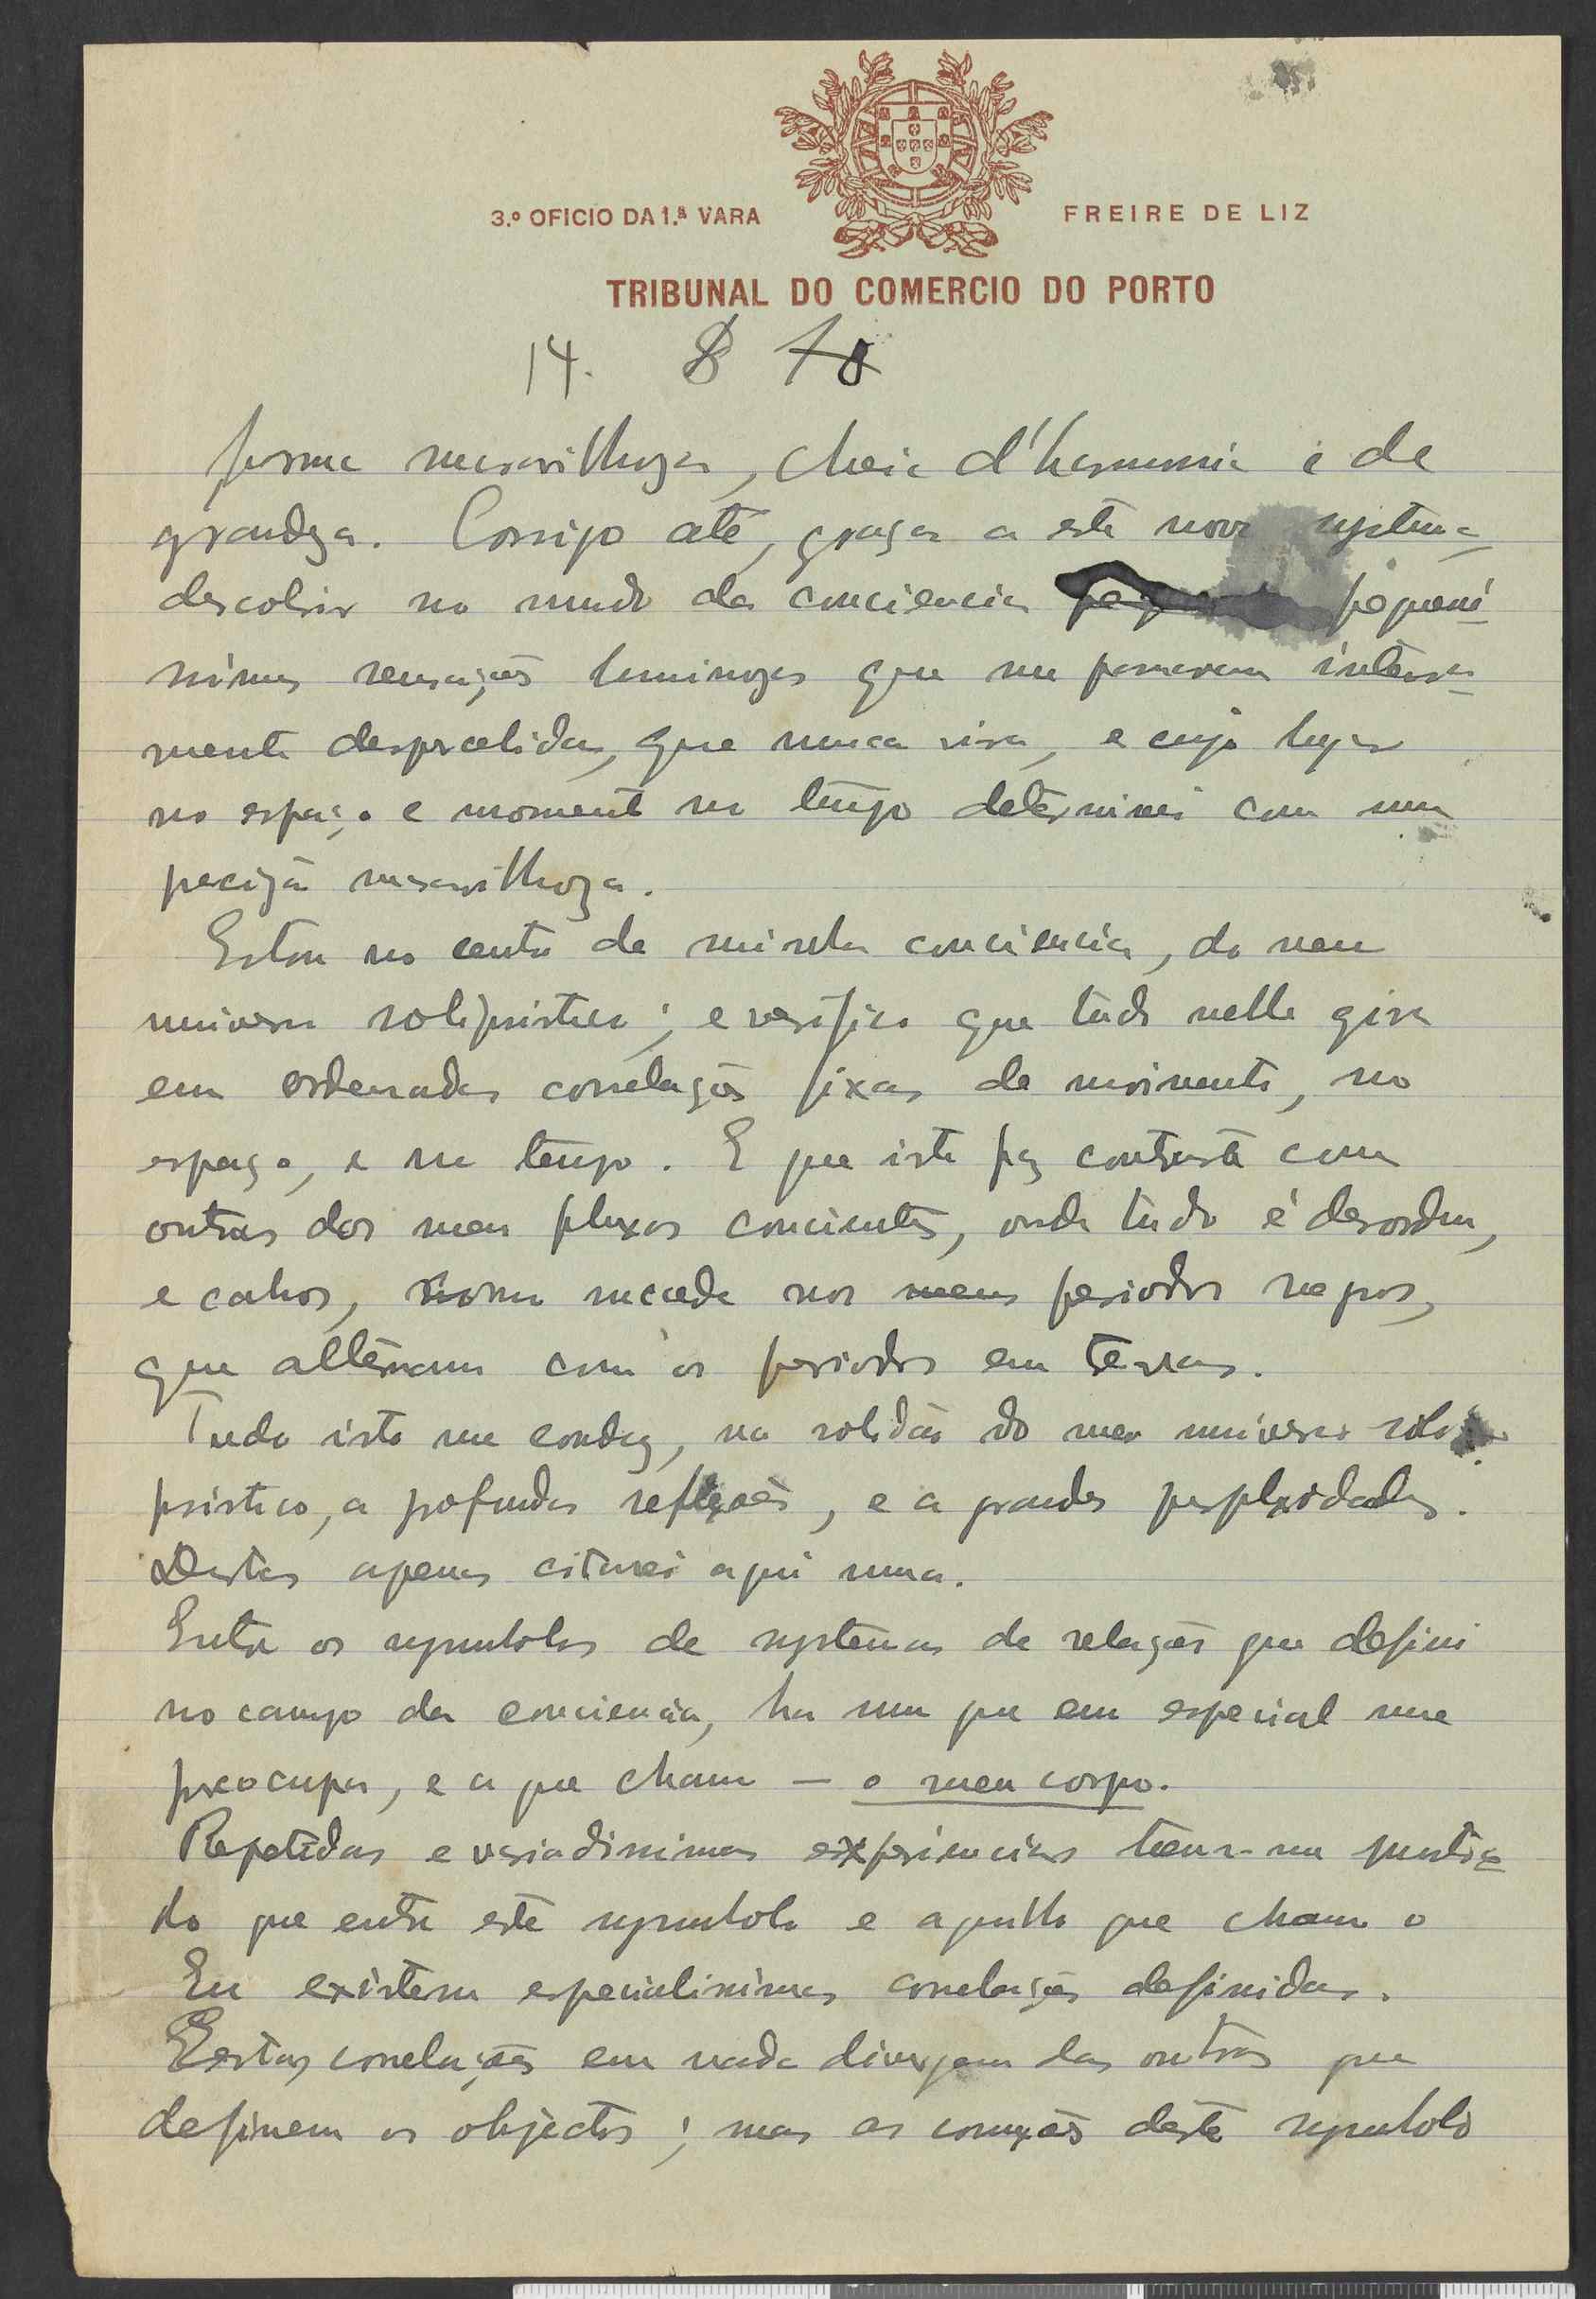 3.º OFICIO DA 1.ª VARA
FREIRE DE LIZ
TRIBUNAL DO COMERCIO DO PORTO
14. 8
forma maravilhoza, cheia d'harmonia e de
grandeza. Consigo até, graças a este novo systema
descobrir no mundo da conciencia pequeni
nimas sensações luminozas que me passavam inteira
mente despercebidas, que nunca vira, e cujo lugar
no espaço e momento no tempo determinei com uma
precizão maravilhoza.
Estou no centro da minha conciencia, do meu
universo solipsistico; e verifico que tudo nelle gira
em ordenadas correlações fixas de movimento, no
espaço, e no tempo. E que isto faz contraste com
outras dos meus fluxos concientes, onde tudo é desordem,
e cahos, como sucede nos meus periodos vagos,
que alternam com os periodos em terras.
Tudo isto me conduz, na solidão do meu universo soli
psistico, a profundas reflexões, e a grandes perplexidades.
Destas apenas citarei aqui uma.
Entre os symbolos de systemas de relações que defini
no campo da conciencia, ha um que em especial me
preocupa, e a que chamo — o meu corpo.
Repetidas e variadissimas experiencias teem-me mostra
do que entre este symbolo e aquillo que chamo o
Eu existem especialissimas correlações definidas.
Estas correlações em nada divergem das outras que
definem os objectos; mas as conexões deste symbolo